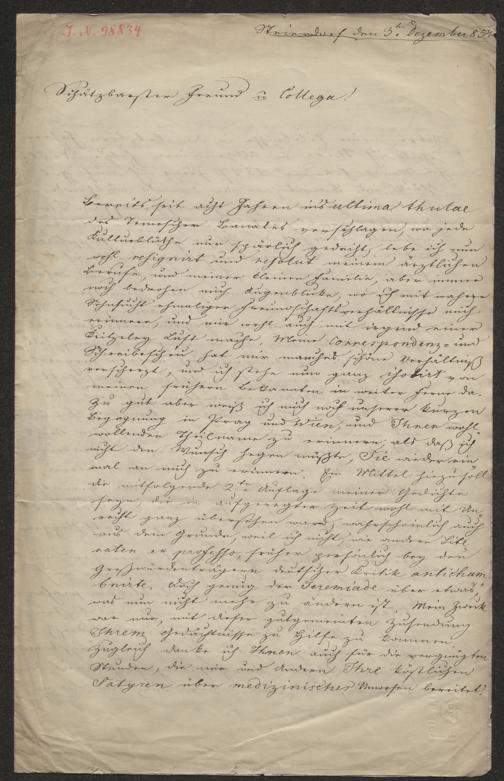 I. N. 98834
Steierdorf den 3ten Dezember 85
Schätzbarster Freund u Collega!
Bereits seit acht Jahren ins ultima thulae
des Temescher Banates verschlagen, wo jede
Kulturblüthe nur spärlich gedeiht, lebe ich nun
wohl resignirt und resolut meinem ärztlichen
Berufe, und meiner kleinen Familie, aber immer
noch bedrohen mich Augenblicke, wo ich mit wahrer
Sehnsucht ehmaliger Freundschaftsverhältniße mich
erinnere, und mir wohl auch mit irgend einer
Luft mache. Meine Correspondenz- und
Schreibescheu hat mir manches schöne Verhältniß
verscherzt, und ich stehe nun ganz isolirt von
meinen frühern Bekannten in weiter Ferne da.
Zu gut aber weiß ich mich noch unserer kurzen
Begegnung in Prag und Wien, und Ihrer wohl
wollenden Theilname zu erinnern, als daß ich
nicht den Wunsch hegen müßte, Sie wieder ein
mal an mich zu erinnern. Ein Mittel hiezu soll
die mitfolgende 2te Auflage meiner Gedichte
seyn, die in aufgeregter Zeit wohl mit Un-
recht ganz übersehen ward, wahrscheinlich auch
aus dem Grunde, weil ich nicht, wie andere Lite-
raten ex professo, früher persönlich bey den
Großwürdenträgern deutscher Kritik anticham
brirte. Doch genug der Jeremiade über etwas,
was nun nicht mehr zu ändern ist. Mein Zweck
war nur, mit dieser gutgemeinten Zusendung
Ihrem Gedächtniße zu Hilfe zu kommen.
Zugleich danke ich Ihnen auch für die vergnügten
Stunden, die mir und andern Ihre köstlichen
Satyren über medizinisches Unwesen bereitet.